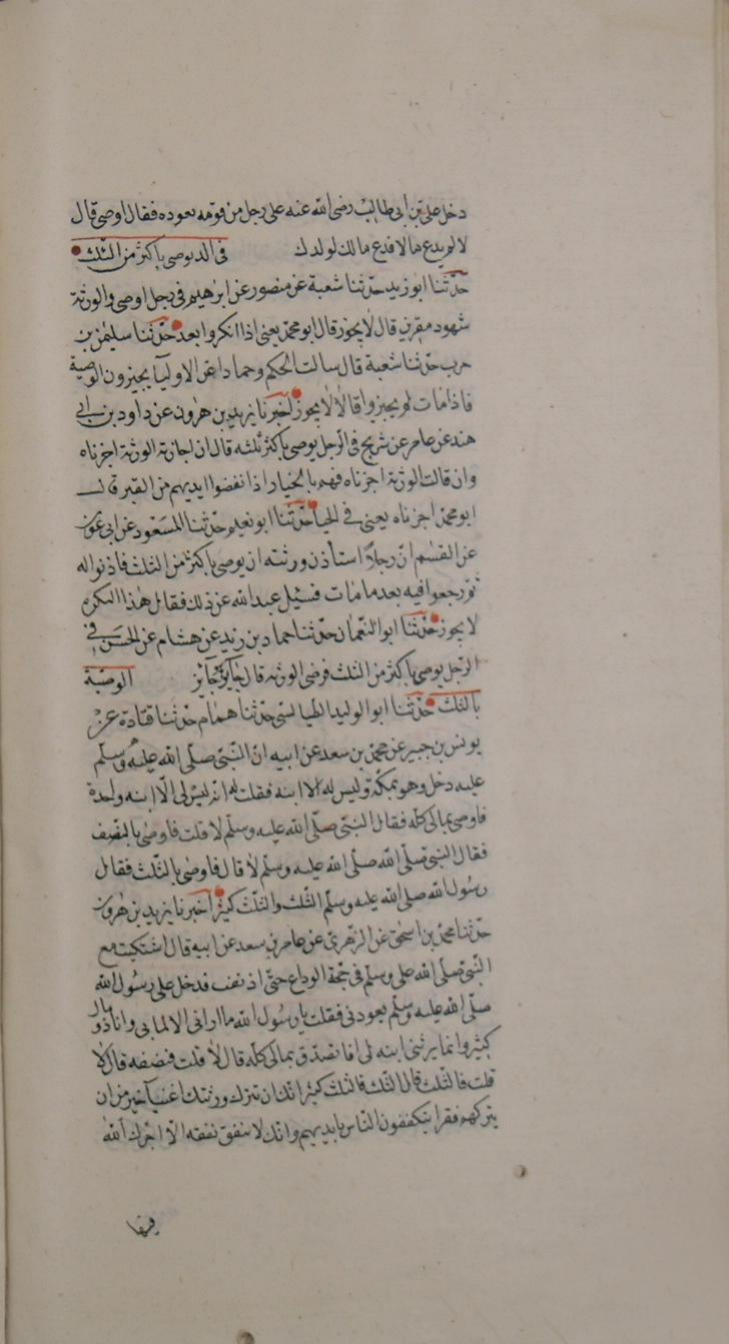 دخل على بن ابى طالب رضى الله عنه على رجل من قومه يعوده فقال اوصى قال
لا لم يدع مالا فدع مالك لولدك في الذ يوصى باكثر من الثلث
حدثنا ابو زيد حدثنا شعبة عن منصور عن ابرهيم في رجل اوصى والورثة
شهود مقرن قال لا يجوز قال ابو محمد يعنى اذا انكروا بعد حدثنا سليمن بن
حرب حدثنا شعبة قال سالت الحكم وحمادا عن الاوليآ يجيزون الوصية
فاذا مات لم يجيزوا قالا لا يجوز اخبرنا يزيد بن هرون عن داود بن ابى
هند عن عامر عن شريح في الرجل يوصى باكثر ثلثه قال ان اجازته الورثة اجزناه
وان قالت الورثة اجزناه فهم بالخيار اذا نفضوا ايديهم من القبر قال
ابو محمد اجزناه يعنى في الحيا حدثنا ابو نعيم حدثنا المسعود عن ابى عون
عن القسم ان رجلا استأذن ورثته ان يوصى باكثر من الثلث فاذنوا له
ثم رجعوا فيه بعد ما مات فسئل عبد الله عن ذلك فقال هذا التكره
لا يجوز حدثنا ابو النعمان حدثنا حماد بن زيد عن هشام عن الحسن في
الرجل يوصى باكثر من الثلث فرضى الورثه قال جائز الوصية
بالثلث حدثنا ابو الوليد الطيالسى حدثنا همام حدثنا قتادة عن
يونس بن جبير عن محمد بن سعد عن ابيه ان النبى صلى الله عليه وسلم
عليه دخل وهو بمكة وليس له الا ابنه فقلت له انه ليس لى الا ابنه واحدة
فاوصى بمالى كله فقال النبى صلى الله عليه وسلم لا قلت فاوصى بالنصف
فقال النبى صلى الله صلى الله عليه وسلم لا قال فاوصى بالثلث فقال
رسول الله صلى الله عليه وسلم الثلث والثلث كثير اخبرنا يزيد بن هرون
حدثنا محمد بن اسحق عن الزهرى عن عامر بن سعد عن ابيه قال اشتكيت مع
النبى صلى الله على وسلم في حجة الوداع حتى اذ نفت فدخل على رسول الله
صلى الله عليه وسلم يعودنى فقلت يا رسول الله ما ارانى الا لما بى وانا ذو مال
كثير وانما يرثنى ابنه لى افاتصدق بمالى كله قال لا قلت فنصفه قال لا
قلت فالثلث قال الثلث فالثلث كثير انك ان تترك ورثتك اغنيآ خير من ان
يتركهم فقرا يتكففون الناس بايديهم وانك لا تنفق نفقه الا اجرك الله
فيها